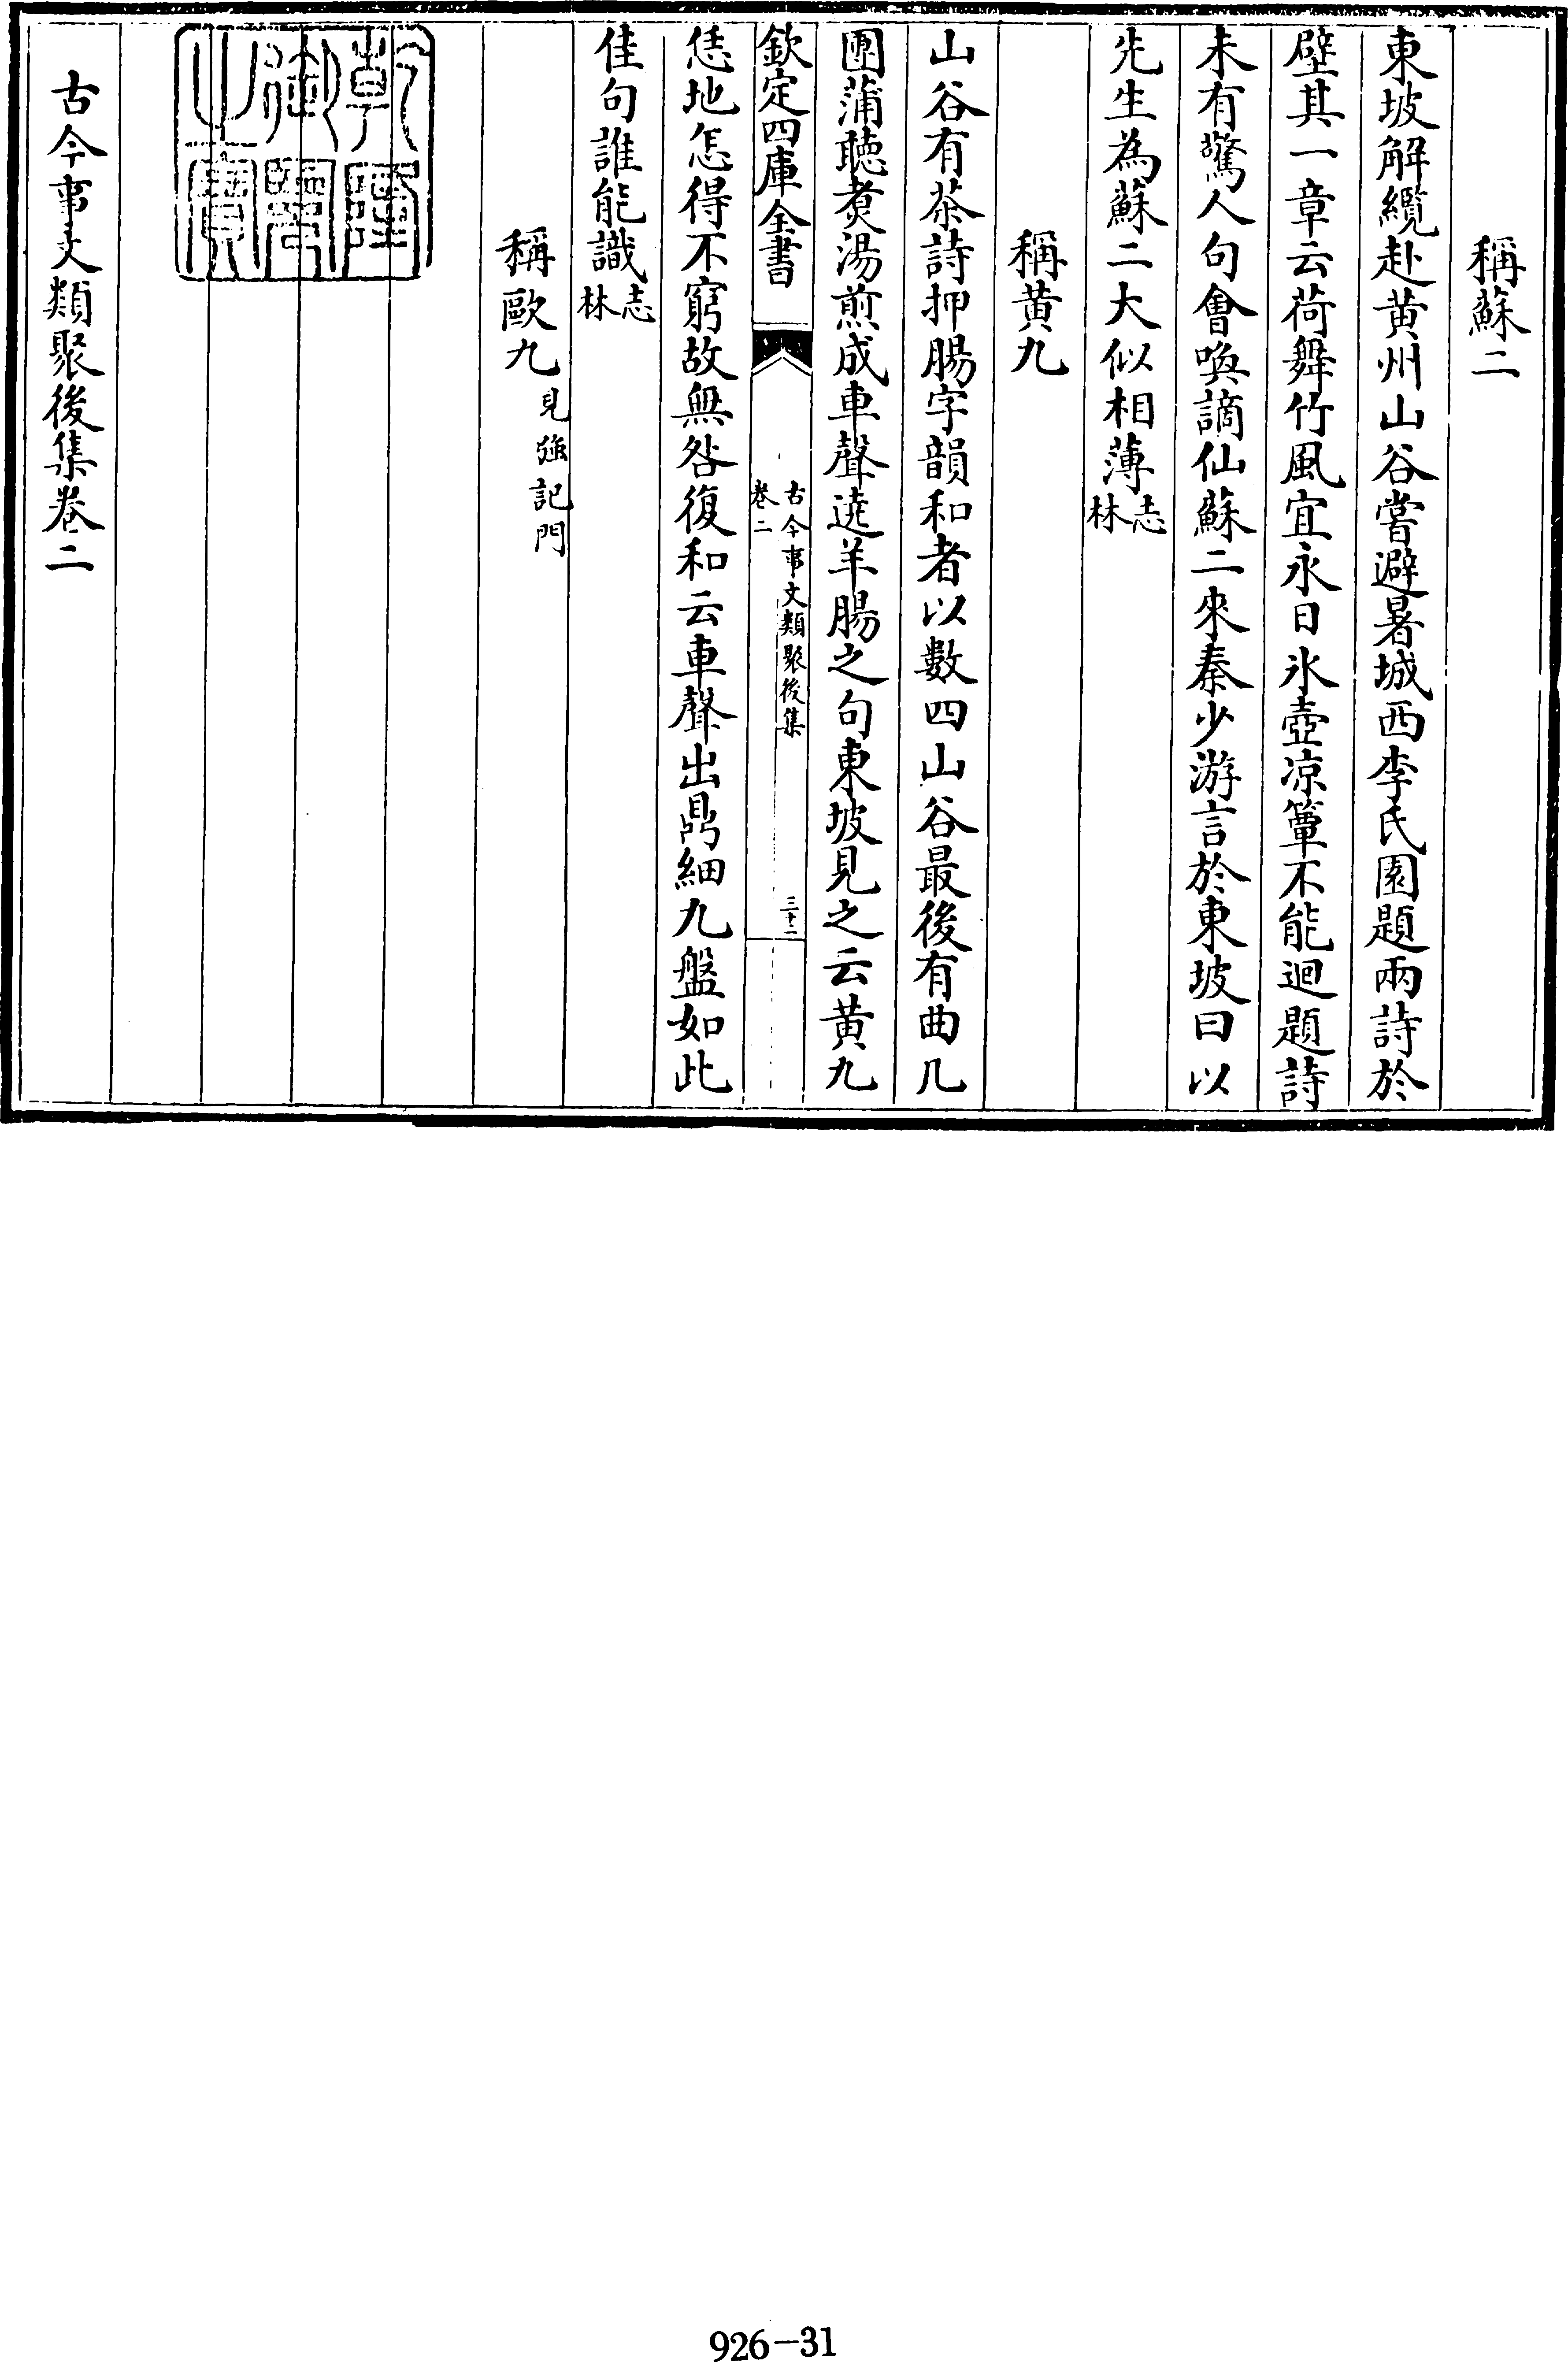 稱蘇二
東坡解纜赴黄州山谷嘗避暑城西李氏園題兩詩於
壁其一章云荷舞竹風宜永日氷壺凉簟不能迴題詩
未有驚人句會喚謫仙蘇二來秦少游言於東坡曰以
先生為蘇二大似相薄志林
稱黄九
山谷有茶詩押腸字韻和者以數四山谷最後有曲几
團蒲聽煮湯煎成車聲遶羊腸之句東坡見之云黄九
欽定四庫全書
古今事文類聚後集
卷二
三十二
恁地怎得不窮故無咎復和云車聲出鼎細九盤如此
佳句誰能識志林
稱歐九見強記門
乾隆御覽之寶
古今事文類聚後集卷二
926-31